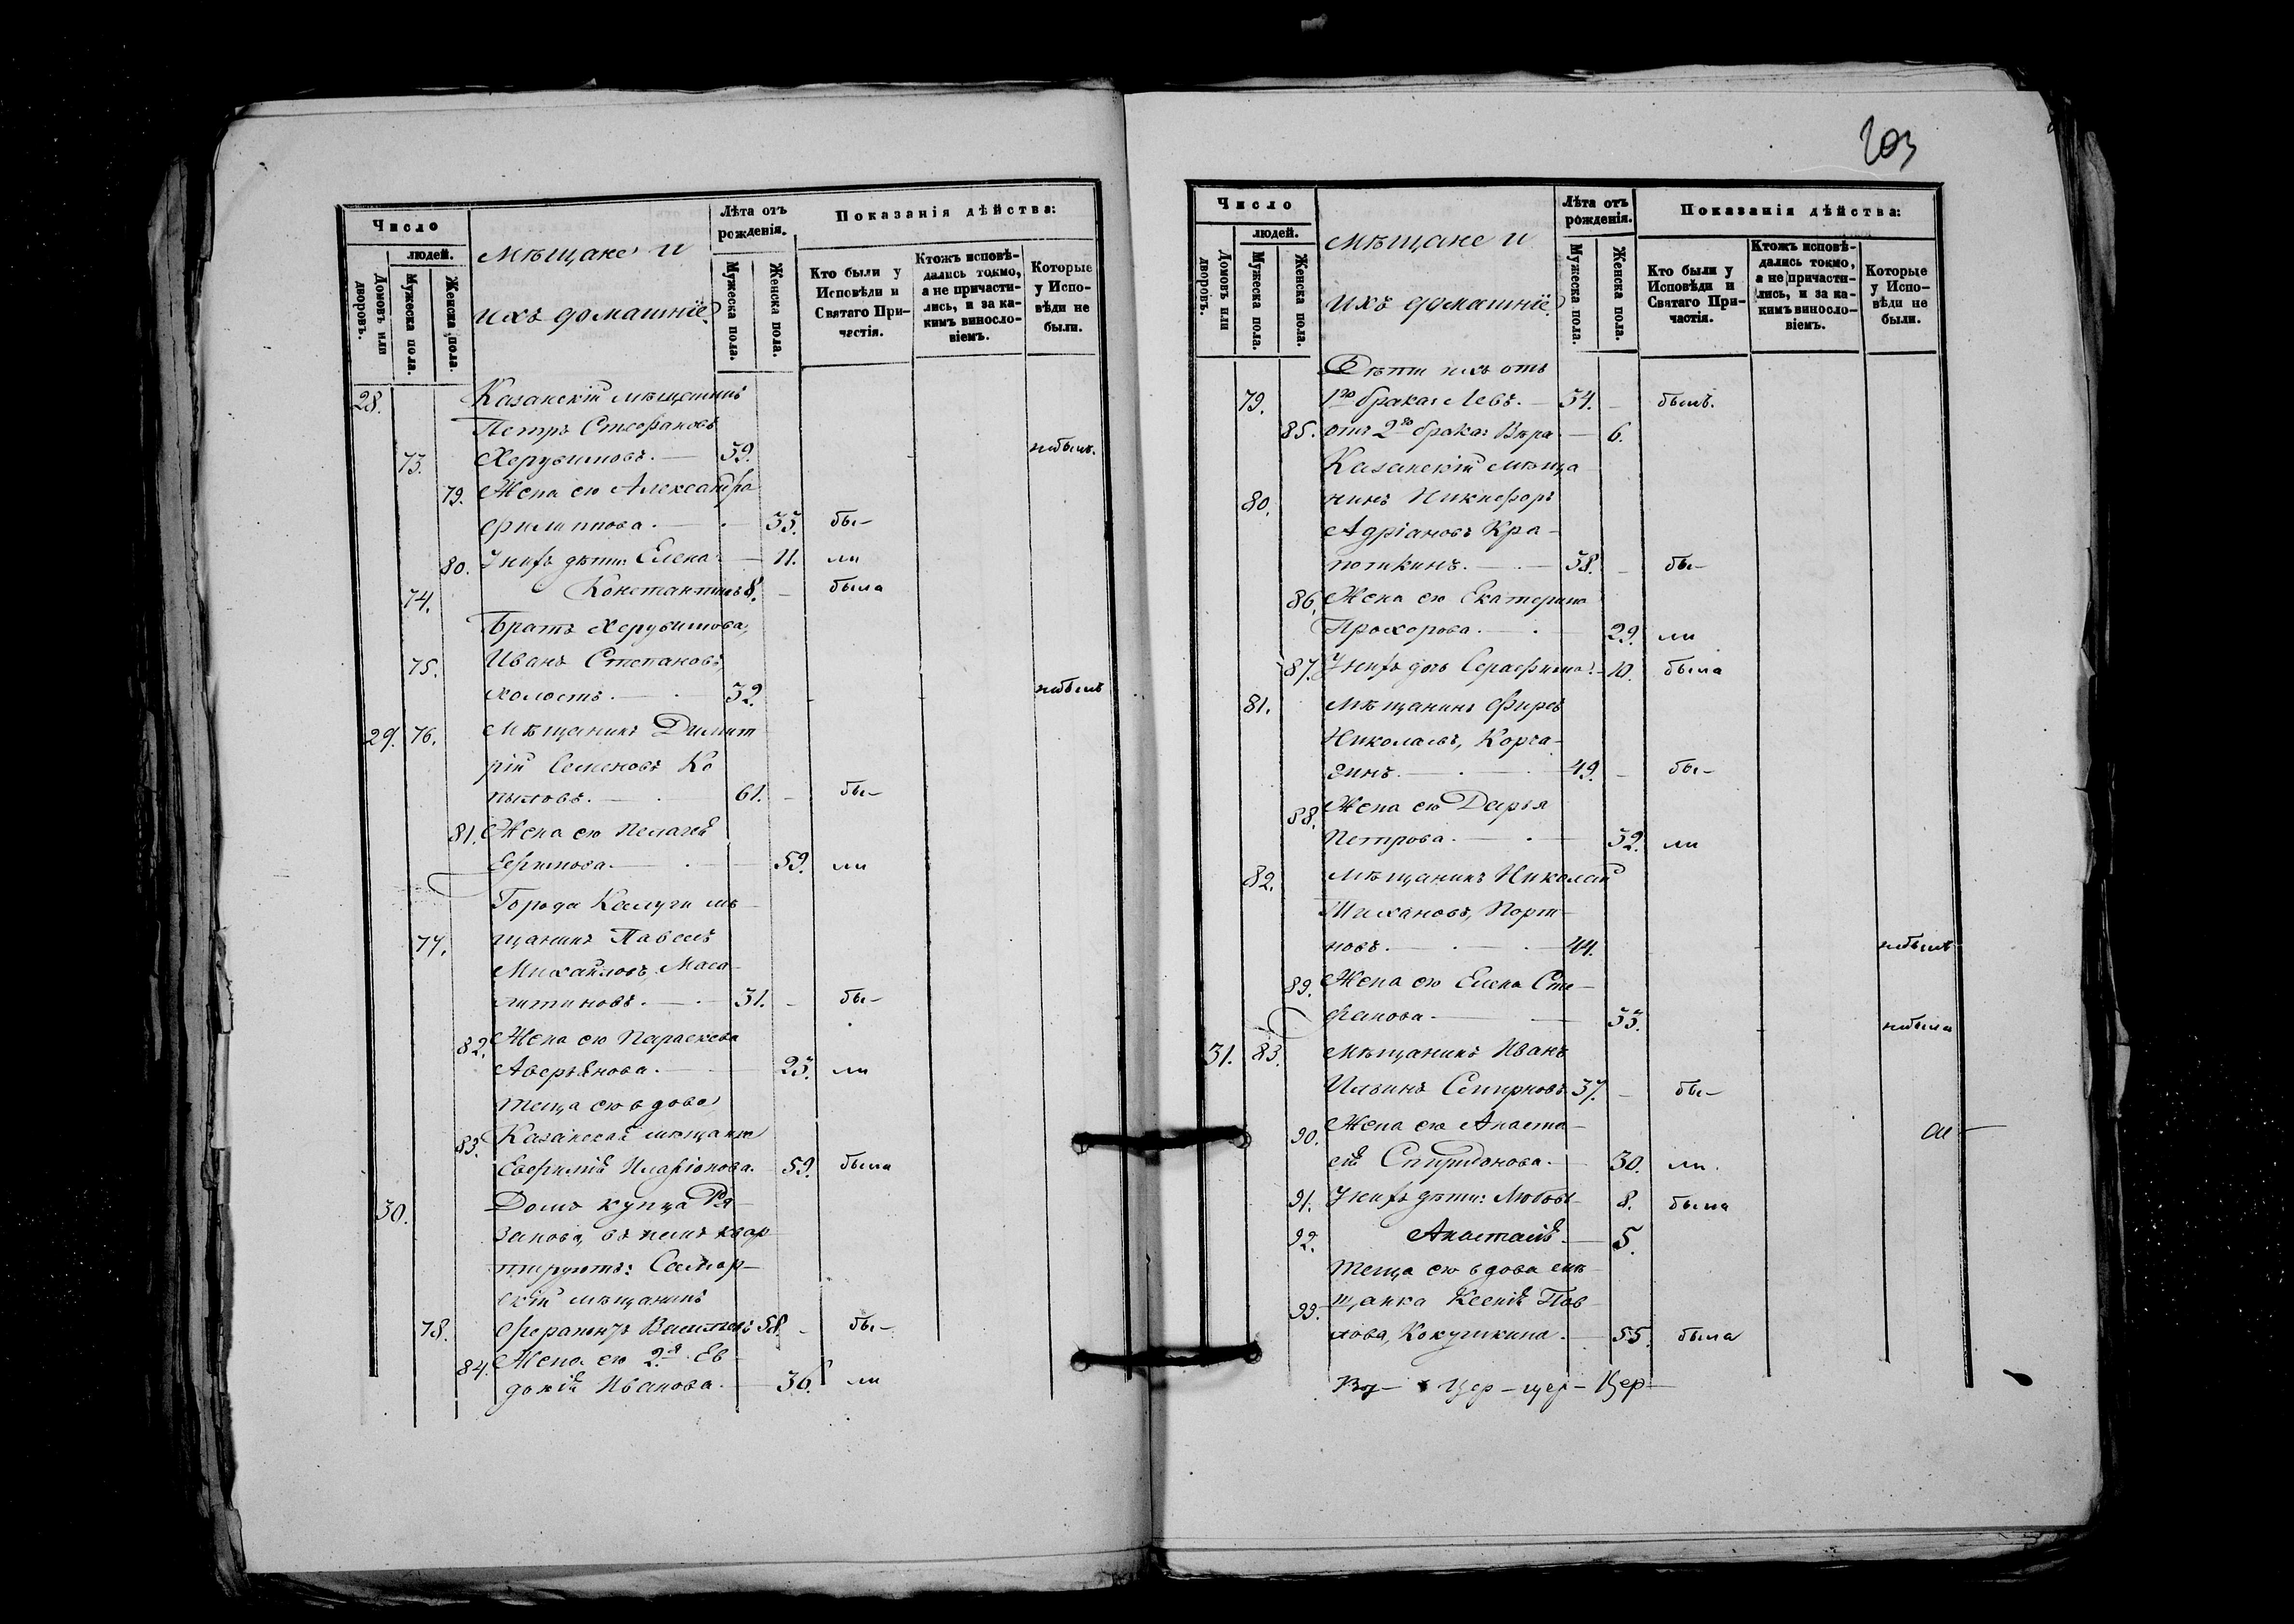 Число
людей.
Домовъ или дворовъ.
Мужеска пола.
Женска пола.
Мѣщане и
ихъ домашніе.
Лѣта отъ рожденія.
Мужеска пола.
Женска пола.
Показанія дѣйства:
Кто были у Исповѣди и Святаго При-
частія.
Ктожъ исповѣ-
дались токмо,
а не причасти-
лись, и за ка-
кимъ винosло-
віемъ.
Которые
у Испо-
вѣди не
были.
28. Казанскій мѣщанинъ
Петръ Стефановъ
73. Херувимовъ. — 39. небылъ.
79. Жена его Александра
Филиппова. — 33. бы-
80. У нихъ дѣти: Елена — 11. ли
74. Константинъ 8. — была
Братъ Херувимова,
75. Иванъ Степановъ,
холостъ. — 32. небылъ
29. 76. Мѣщанинъ Димит
рій Семеновъ Ко
пыловъ. — 61. — бы-
81. Жена его Пелагея
Ефимова. — 59. ли
Города Калуги мѣ-
77. щанинъ Павелъ
Михайловъ Маса-
литиновъ. — 31. — бы-
82. Жена его Параскева
Аверьянова. — 23. ли
теща его вдова
83. Казанская мѣщанка
Евфимія Иларіонова. 59. была
30. Домъ купца Ря-
занова, въ немъ квар-
тируютъ: Самар-
скій мѣщанинъ
78. Ферапонтъ Васильевъ 58. - бы-
84. Жена его 2.я Ев-
докія Иванова. — 36. ли
203
Число
людей.
Домовъ или дворовъ.
Мужеска пола.
Женска пола.
Мѣщане и
ихъ домашніе.
Лѣта отъ рожденія.
Мужеска пола.
Женска пола.
Показанія дѣйства:
Кто были у
Исповѣди и
Святаго При-
частія.
Ктожъ исповѣ-
дались токмо,
а не причасти-
лись, и за ка-
кимъ винosло-
віемъ.
Которые
у Испо-
вѣди не
были.
Дѣти ихъ отъ
79. 1го брака: Левъ. — 34. — былъ.
85. отъ 2го брака: Вѣра. — 6.
Казанскій мѣща
80. нинъ Никифоръ
Адріановъ Кра-
поткинъ. — 38. — бы-
86. Жена его Екатерина
Прохорова. — 29. ли
87. У нихъ дочь Серафима. - 10. была
81. Мѣщанинъ Фирсъ
Николаевъ, Корча-
гинъ. — 49. — бы-
88. Жена его Дарья
Петрова. — 32. ли
82. Мѣщанинъ Николай
Тихановъ, Порт-
новъ. — 44. небылъ
89. Жена его Елена Сте-
фанова. — 33. небыла
31. 83. Мѣщанинъ Иванъ
Ильинъ Смирновъ 37. — бы-
90. Жена его Анаста-
сія Спиридонова. — 30. ли.
91. У нихъ дѣти: Любовь — 8. была
92. Анастасія. — 5.
теща его вдова мѣ-
93. щанка Ксенія Пав-
лова, Кокушкина. — 55. была